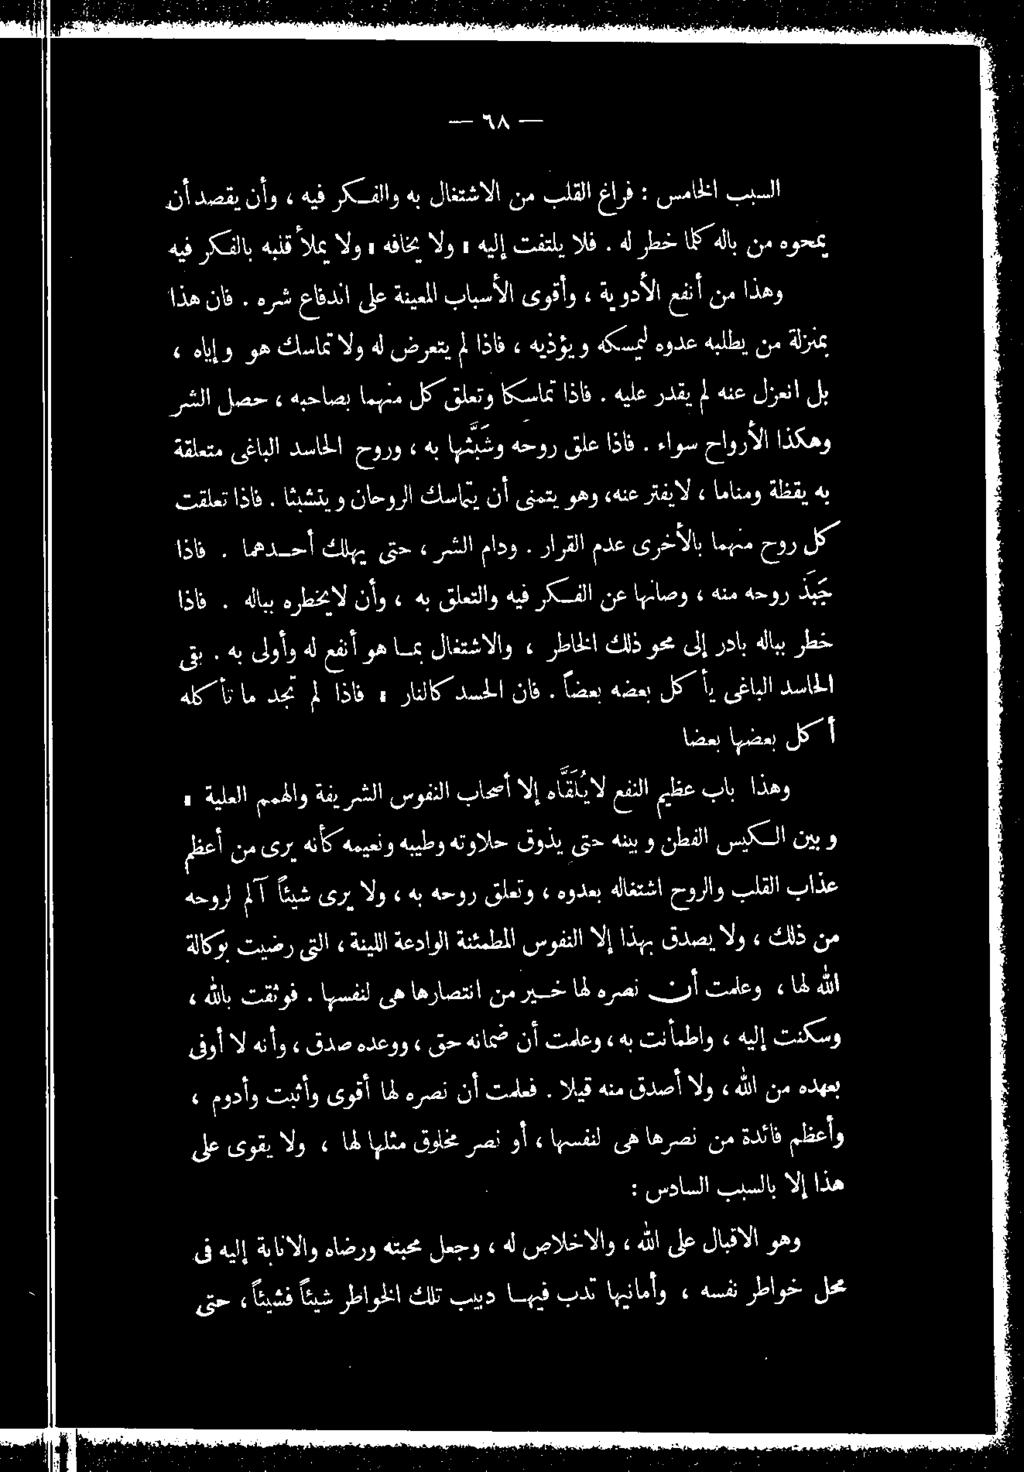 — ٦٨ —
السبب الخامس : فراغ القلب من الاشتغال به والفكر فيه ، وأن يقصد أن
يمحوه من باله كلما خطر له . فلا يلتفت إليه ، ولا يخافه ، ولا يملأ قلبه بالفكر فيه
وهذا من أنفع الأدوية ، وأقوى الأسباب المعينة على اندفاع شره . فان هذا
بمنزلة من يطلبه عدوه ليمسكه ويؤذيه ، فاذا لم يتعرض له ولا تماسك هو وإياه ،
بل انعزل عنه لم يقدر عليه . فاذا تماسكا وتعلق كل منهما بصاحبه ، حصل الشر
وهكذا الأرواح سواء . فاذا علق روحه وشَبَّثها به ، وروح الحاسد الباغى متعلقة
به يقظة ومناما ، لا يفتر عنه ، وهو يتمنى أن يتماسك الروحان ويتشبثا . فاذا تعلقت
كل روح منهما بالأخرى عدم القرار . ودام الشر ، حتى يهلك أحدهما . فاذا
جَبَذ روحه منه ، وصانها عن الفكر فيه والتعلق به ، وأن لا يخطره بباله . فاذا
خطر بباله بادر إلى محو ذلك الخاطر ، والاشتغال بما هو أنفع له وأولى به . بقى
الحاسد الباغى يأكل بعضه بعضاً . فان الحسد كالنار ، فاذا لم تجد ما تأكله
أكل بعضها بعضا
وهذا باب عظيم النفع لا يُلَقَّاه إلا أصحاب النفوس الشريفة والهمم العلية ،
وبين الكيس الفطن وبينه حتى يذوق حلاوته وطيبه ونعيمه كأنه يرى من أعظم
عذاب القلب والروح اشتغاله بعدوه ، وتعلق روحه به ، ولا يرى شيئاً آلم لروحه
من ذلك ، ولا يصدق بهذا إلا النفوس المطمئنة الوادعة اللينة ، التى رضيت بوكالة
الله لها ، وعلمت أن نصره لها خير من انتصارها هى لنفسها . فوثقت بالله ،
وسكنت إليه ، واطمأنت به ، وعلمت أن ضمانه حق ، ووعده صدق ، وأنه لا أوفى
بعهده من الله ، ولا أصدق منه قيلا . فعلمت أن نصره لها أقوى وأثبت وأدوم ،
وأعظم فائدة من نصرها هى لنفسها ، أو نصر مخلوق مثلها لها ، ولا يقوى على
هذا إلا بالسبب السادس :
وهو الاقبال على الله ، والاخلاص له ، وجعل محبته ورضاه والانابة إليه فى
محل خواطر نفسه ، وأمانيها تدب فيها دبيب تلك الخواطر شيئاً فشيئاً ، حتى